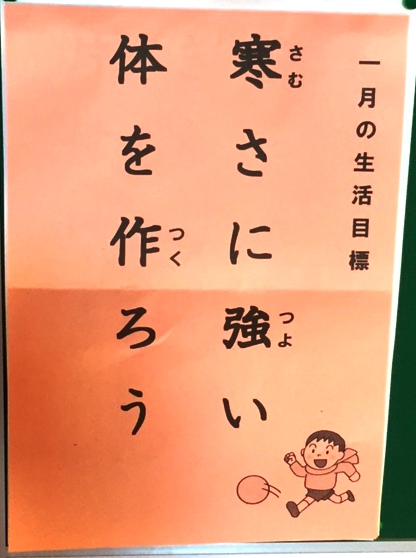 一月の生活目標
寒さに強い
さむ
つよ
体を作ろう
つく